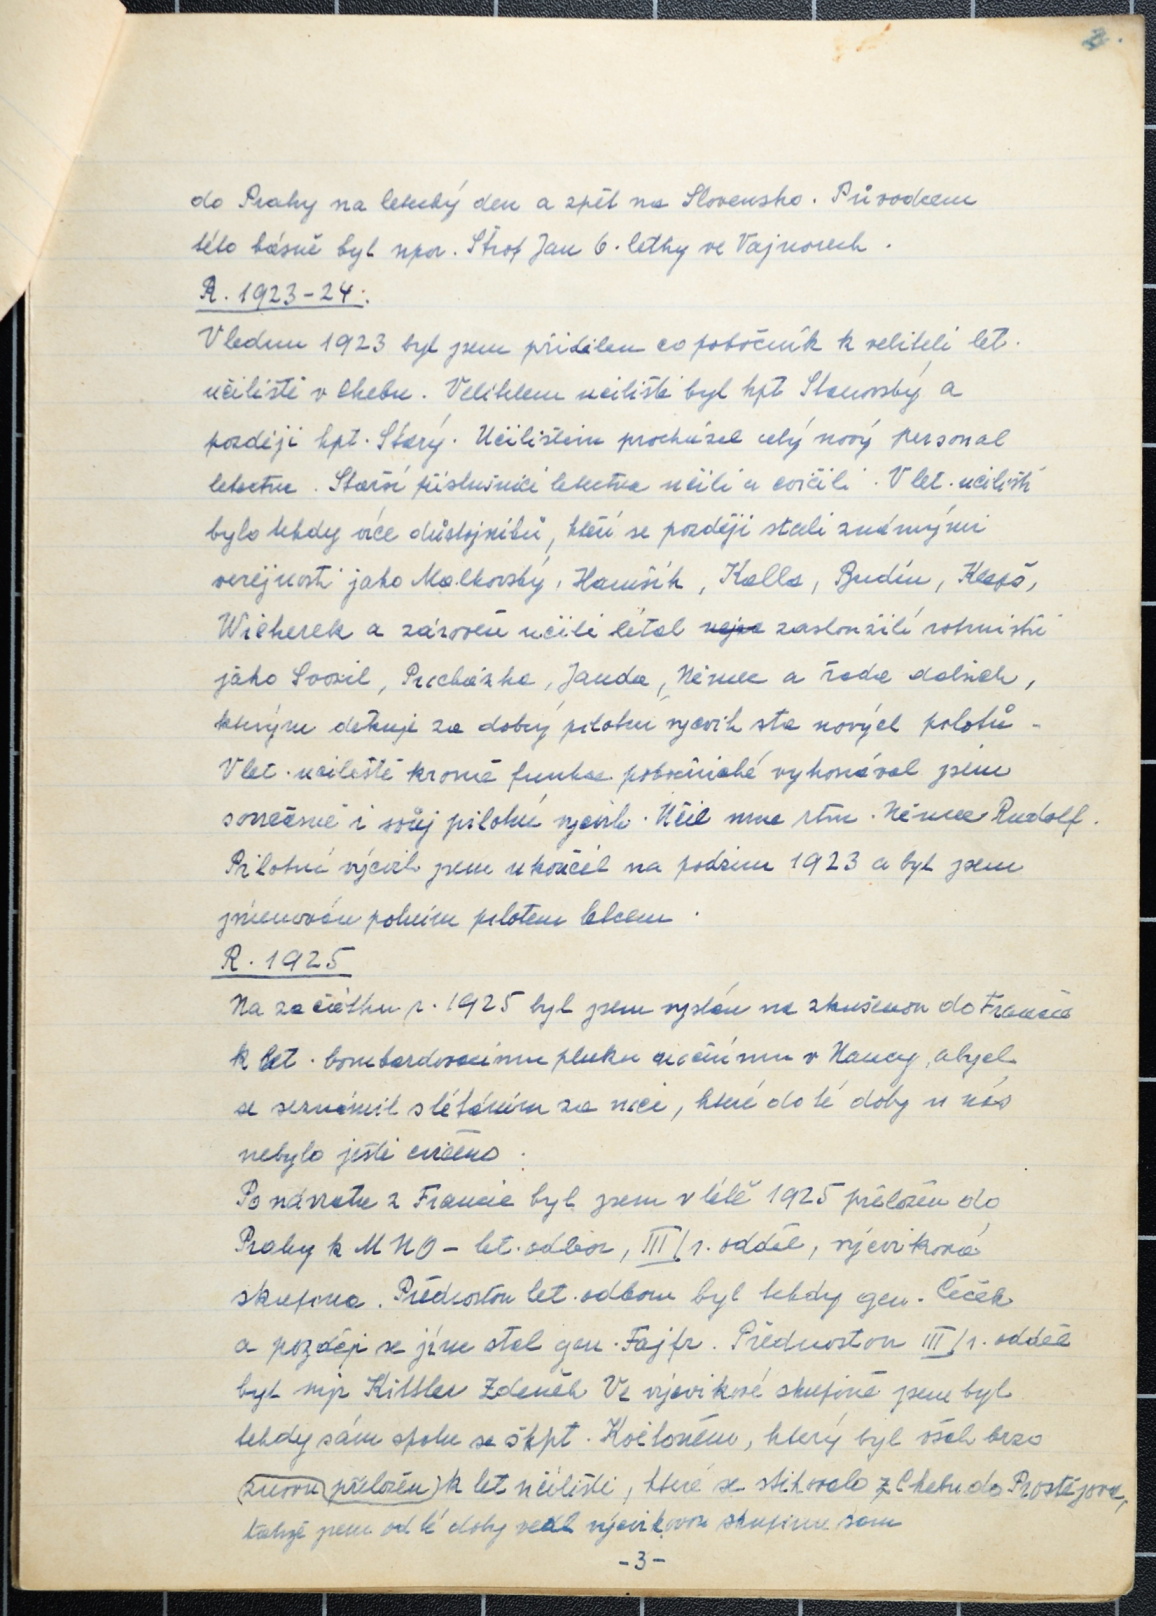 do Prahy na letecký den a zpět na Slovensko. Průvodcem
této básně byl npor. Štrof Jan 6. letky ve Vajnorech.
R. 1923-24:
V lednu 1923 byl jsem přidělen co pobočník k veliteli let.
učiliště v Chebu. Velitelem učiliště byl kpt Stanovský a
později kpt. Starý. Učilištěm procházel celý nový personal
letectva. Starší příslušníci letectva učili a cvičili. V let. učilišti
bylo tehdy více důstojníků, kteří se později stali známými
veřejnosti jako Malkovský, Hamšík, Kalla, Budín, Klepš,
Wicherek a zároveň učili létat zasloužilí rotmistři
jako Svozil, Procházka, Janda, Němec a řada dalších,
kterým děkuje za dobrý pilotní výcvik sta nových pilotů -
V let. učiliště kromě funkce pobočnické vykonával jsem
současně i svůj pilotní výcvik. Učil mne rtm. Němec Rudolf.
Pilotní výcvik jsem ukončil na podzim 1923 a byl jsem
jmenován polním pilotem letcem.
R. 1925
Na začátku r. 1925 byl jsem vyslán na zkušenou do Francie
k let. bombardovacímu pluku nočnímu v Nancy, abych
se seznámil s létáním za noci, které do té doby u nás
nebylo ještě cvičeno.
Po návratu z Francie byl jsem v létě 1925 přeložen do
Prahy k MNO - let. odbor, III/1. odděl, výcviková
skupina. Přednostou let. odboru byl tehdy gen. Čeček
a později se jím stal gen. Fajfr. Přednostou III/1. odděl
byl mjr Kittler Zdeněk Ve výcvikové skupině jsem byl
tehdy sám spolu se škpt. Kočtoněm, který byl však brzo
znovu přeložen k let učiliště, které se stihovalo z Chebu do Prostějova,
takže jsem od té doby vedl výcvikovou skupinu sám
-3-